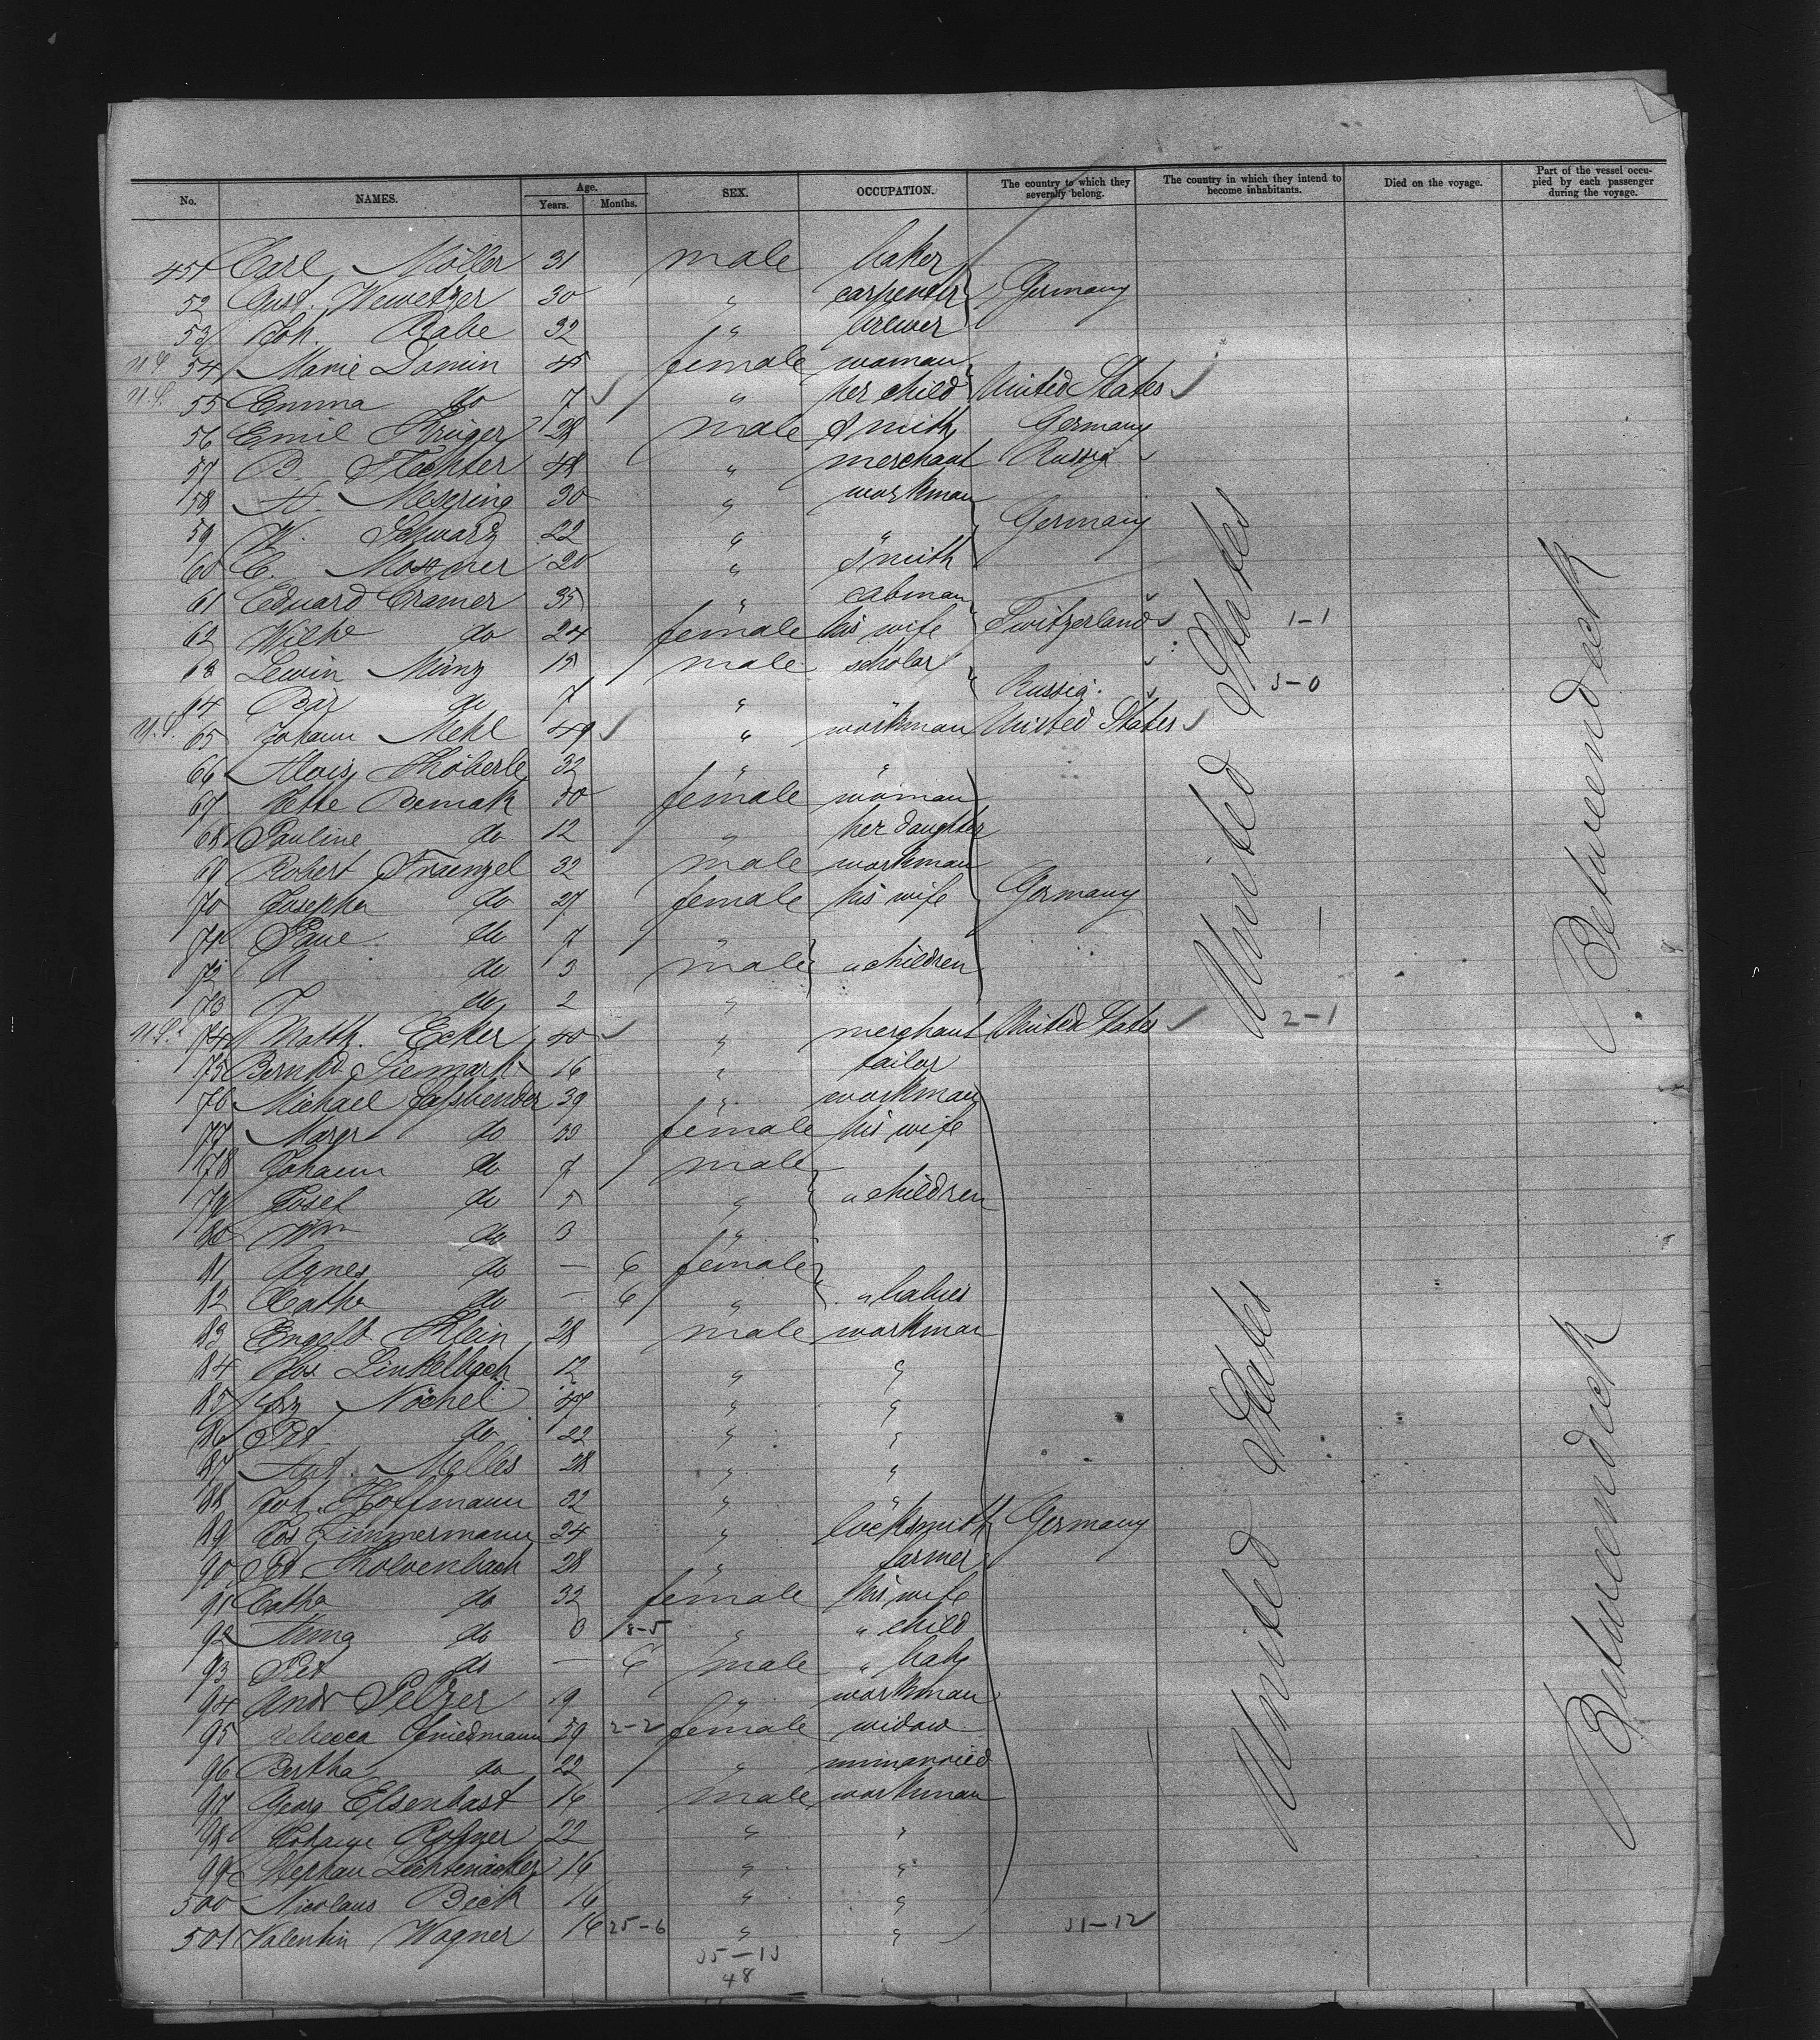 No. NAMES. Age. Years. Months. SEX. OCCUPATION. The country to which they severally belong. The country in which they intend to become inhabitants. Died on the voyage. Part of the vessel occupied by each passenger during the voyage.
451 Carl Möller 31 male baker
52 Aust. Wewetzer 30 " carpenter Germany
53 Joh. Rabe 32 " brewer
U.S. 54 Marie Domin 45 female woman
U.S. 55 Emma do 7 " her child United States
56 Emil Krüger 28 male smith Germany
57 B. Flechter 48 " merchant Russia
58 H. Mesering 30 " workman
59 W. Schwarz 22 " " Germany
60 C. 20 " smith
61 Eduard Cramer 35 " cabman
62 Wilhe do 24 female his wife Switzerland 1-1
63 Lewin Münz 15 male scholar
64 Bär do 7 " Russia
U.S. 65 Johann Mehl 49 " workman United States
66 Alois Köberle 32 " "
67 Jette Remak 50 female woman
68 Pauline do 12 " her daughter
69 Robert Fraenzel 32 male workman
70 Josepha do 27 female his wife Germany
71 do 7 "
72 A do 3 male " children
73 do 2 "
U.S. 74 Matth. Ecker 40 " merchant United States 2-1
75 Bernhd 16 " tailor
76 Michael Faßbender 39 " workman
77 Margr do 33 female his wife
78 Johann do 7 male
79 Josef do 5 " " children
80 Wm do 3 "
81 Agnes do — 6 female
82 Catha do — 6 " " babies
83 Engelb. Klein 28 male workman
84 Jos Linkelbach 12 " "
85 Nöchel 47 " "
86 Pet do 22 " "
87 Ant. Melles 28 " "
88 Joh. Hoffmann 32 " "
89 Jos Zimmermann 24 " locksmith Germany
90 Pet Kolvenbach 28 " farmer
91 Catha do 32 female his wife
92 Anna do 3 " " child
93 Pet do — 6 male " baby
94 Andr Pelzer 19 " workman
95 Rebecca Friedmann 59 2-2 female widow
96 Bertha do 22 " unmarried
97 Georg Elsenbast 16 male workman
98 22 " "
99 Stephan 16 " "
500 Nicolaus Beck 16 " "
501 Valentin Wagner 16 25-6 " "
48
United States
United States
Betweendeck
Betweendeck